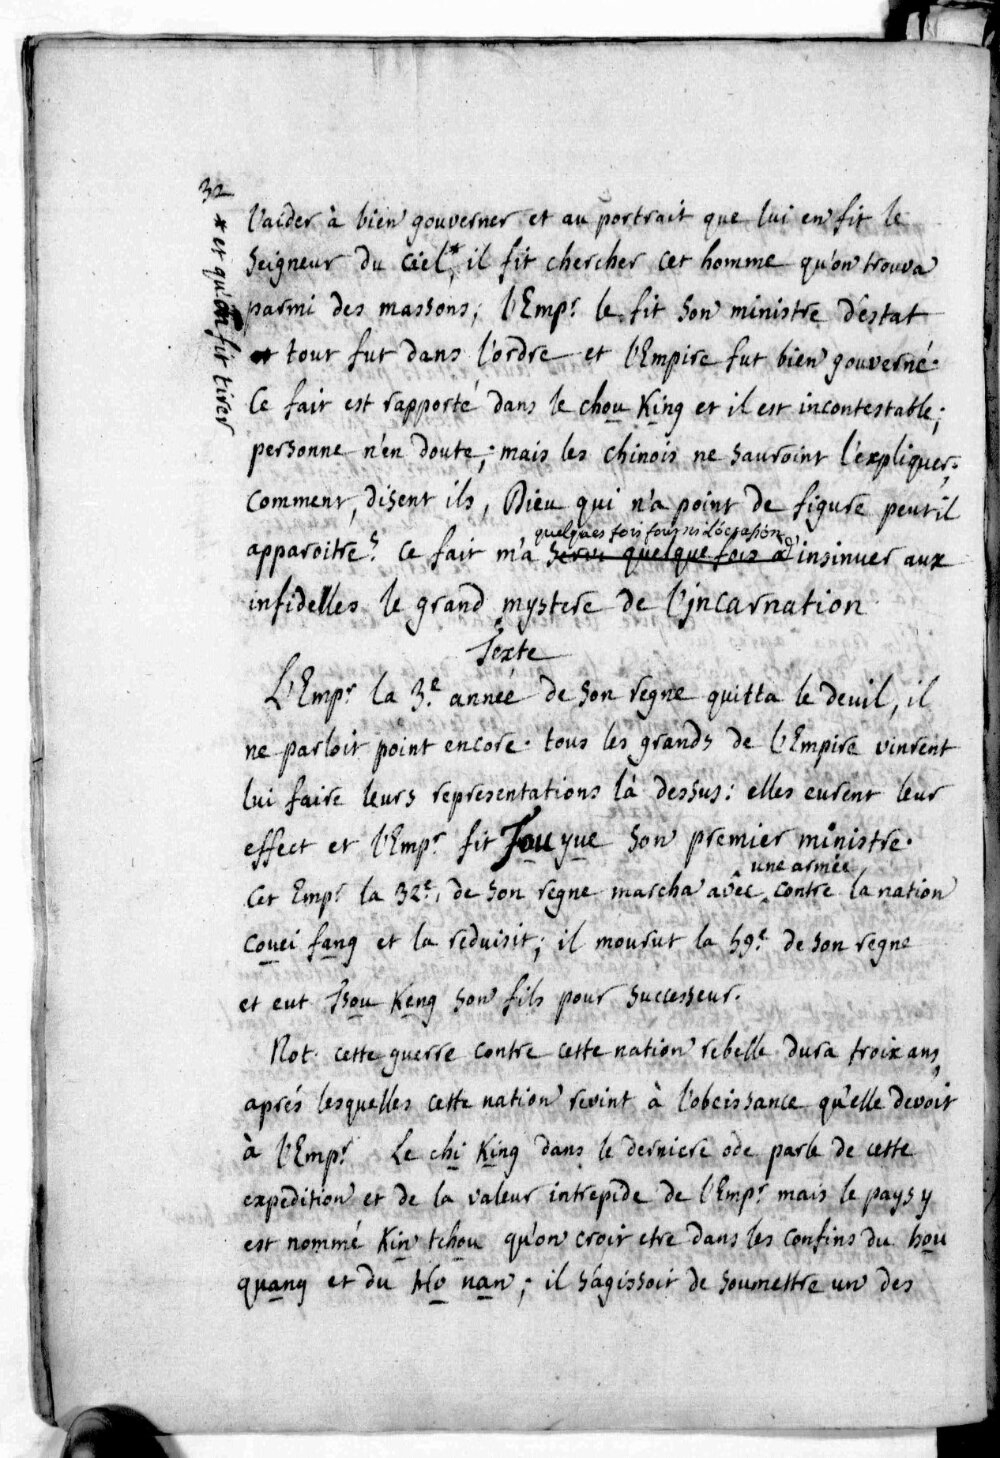 32
* et qu'on fit tirer
l'aider à bien gouverner et au portrait que lui en fit le
seigneur du ciel* il fit chercher cet homme qu'on trouva
parmi des massons; l'Emp.r le fit son ministre d'estat
et tout fut dans l'ordre et l'Empire fut bien gouverné.
Ce fait est rapporté dans le chou King et il est incontestable;
personne n'en doute; mais les chinois ne sauroint l'expliquer;
comment, disent ils, Dieu qui n'a point de figure peut il
quelques fois fourni l'occasion d'
apparoitre? Ce fait m'a servi quelque fois a insinuer aux
infidelles le grand mystere de l'incarnation
Texte
L'Emp.r la 3.e année de son regne quitta le deuil, il
ne parloit point encore. tous les grands de l'Empire vinrent
lui faire leurs representations là dessus: elles eurent leur
effect et l'Emp.r fit Fou yue son premier ministre.
une armée
Cet Emp.r la 32.e de son regne marcha avec contre la nation
couei fang et la reduisit; il mourut la 59.e de son regne
et eut Tsou Keng son fils pour successeur.
Not. cette guerre contre cette nation rebelle dura troix ans,
aprés lesquelles cette nation revint à l'obeissance qu'elle devoit
à l'Emp.r Le chi King dans le derniere ode parle de cette
expedition et de la valeur intrepide de l'Emp.r mais le pays y
est nommé Kin tchou qu'on croit etre dans les confins du hou
quang et du Ho nan; il s'agissoit de soumettre un des